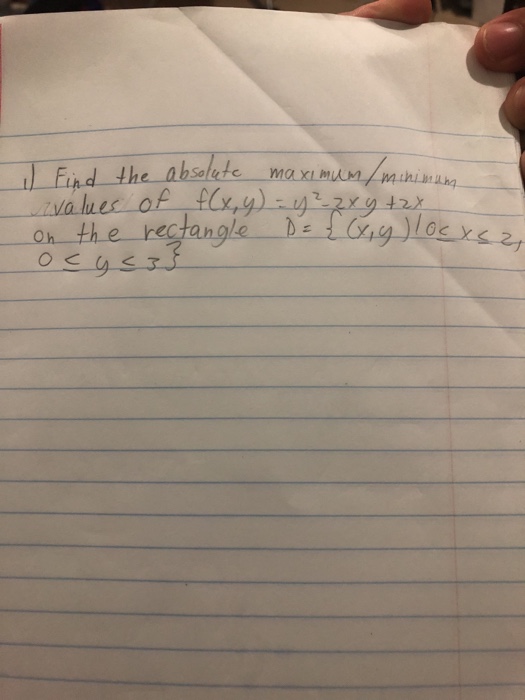 1) Find the absolute maximum/minimum
values of f(x,y) = y²-2xy+2x
on the rectangle D = {(x,y)|0≤x≤2,
0≤y≤3}